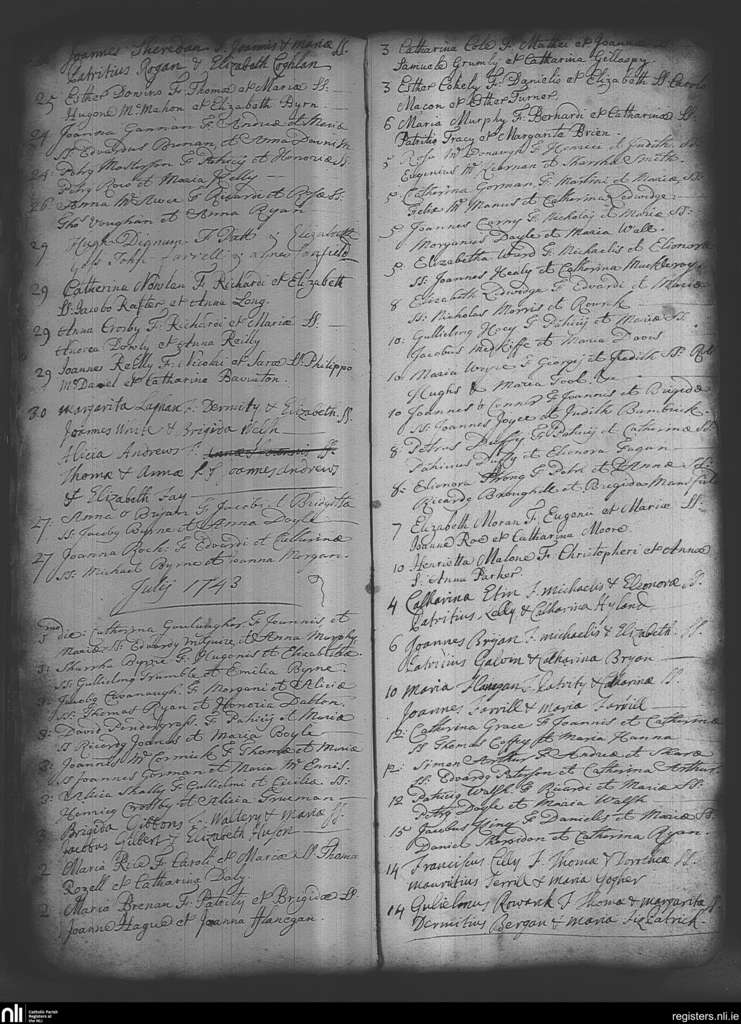 Joannes Sheredan F. Joannis & Mariæ SS.
Patritius Rogan & Elizabeth Coghlan
25 Esther Downs F. Thomæ et Mariæ SS.
Hugone McMahon et Elizabeth Byrn.
24 Joanna Gannan F. Andreæ et Maria
SS Edvardus Brenan, et Anna
24: et Honoriæ SS
Roe et Maria Kelly
26 Anna F. Ricardi et Rosæ SS:
Thos. Vaughan et Anna Ryan
29 Hugh Dignum F. Patt & Elizabeth
John Farrell & Agnes
29 Catherina Nowlan F. Richardi et Elizabeth
SS. Jacobo Rafter et Anna Long.
29 Anna Crosby F. Richardi et Mariæ SS.
Andrea Dowly et Anna Reilly
29 Joannes Reilly F. Nicolai et Saræ SS Philippo
McDanel et Catharina
30 Margarita Lapnan F. Dermity & Elizabeth. SS.
Joannes White & Brigida Welh
Alicia Andrews F. SS.
Thomæ & Annæ SS Joannes Andrews
& Elizabeth Fay
27. Anna O Bryan F. Jacobi et Bridgitta
SS: Jacoby Byrne et Anna Doyle
27 Joanna Rock F. Edvardi et Catherinæ
SS: Michael Byrne et Joanna Morgan.
Julij 1743
die: Catherina F. Joannis et
Mariæ SS: Edvardy McGuire, et Anna Murphy
3: Byrne F. Hugonis et Elizabetha
SS. Gullielmy Trumble et Emilia Byrne.
3: Jacoby Cavanaugh F. Morgani et Aliciæ
SS: Thomas Ryan et Honoria Dalton.
3: David Pendergrass F. Patricij et Mariæ
SS Ricardy et Maria Boyle
3: Joannes McCormick F. Thomæ et Mariæ
SS Joannes Gorman et Maria McEnnis.
3: Alicia Shally F. Gullielmi et Ciciliæ SS:
Henricy Crosby et Alicia Trueman
3 Brigida Gibbons F. Waltery & Maria SS.
Jacobus Gilbert & Elizabeth Huson
2 Maria Reid F. Caroli et Mariæ SS Thoma
Rozell et Catharina Daly
2 Maria Brenan F. Patrity et Brigidæ SS.
Joanne Hague et Joanna Flanegan.
3 Catharina Cole F. Mathei et Joannæ
Samuele Grumly et Catharina Gillaspy.
3 Esther Cokely F. Danielis et Elizabeth SS. Carolo
Macon et Esther Turner.
6 Maria Murphy F. Bernardi et Catharinæ SS.
Patritio Tracy et Margarita Brien.
5 Rosa F. Henrici et Judith SS
Eugenius McKiernan et Smith.
5 Catherina Gorman F. Martini et Mariæ SS
Felix McManus et Catherina Ledwidge.
5 Joannes Carny F. Nicholaj et Mariæ SS:
Morganus Doyle et Maria Wall.
5 Elizabetha Ward F. Michaelis et Elionora
SS: Joannes Healy et Catherina Muckleroy.
8 Elizabeth Ledwidge F. Edvardi et Mariæ
SS: Nicholas Morris et Rourk
10: Gullielmy Hoey F. Patricij et Mariæ SS
Jacobus et Maria Davis
10 Maria F. Georgij et Judith SS.
Hughs & Maria Tool.
10 Joannes O Connor F. Joannis et Brigidæ
SS: Joannes Joyce et Judith
8: Petrus Duffy F. Patricij et Catherinæ SS
Patricius Duffy et Elenora Eagan.
8: Elionora Strong F. Petri et Annæ SS:
Ricardo Broughill et Brigida Mansfield
7 Elizabeth Moran F. Eugenii et Mariæ SS.
Joanne Roe et Catharina Moore
10 Henrietta Malone F. Christopheri et Annæ
S. Anna Parker.
4 Catharina Etin F. Michaelis & Eleonoræ SS.
Patritius Kelly & Catharina Hyland
6 Joannes Bryan F. Michaelis & Elizabeth. SS.
Patricius & Catharina Bryan
10 Maria F. Patrity & Catharinæ SS.
Joannes Farrill & Maria Farrill
12: Catharina Grace F. Joannis et Catherinæ
SS Thomas Coffey et Maria Hanna
12: Simon Arthur F. Andreæ et
SS: Edvardy Peterson et Catherina Arthur
12 Patricij Walsh F. Ricardi et Mariæ SS:
Doyle et Maria Walsh
15 Jacobus F. Danielis et Mariæ SS.
Daniel Sheridon et Catherina Ryan.
14 Franciscus Lilly F. Thomæ & SS.
Mauritius Terrill & Maria
14 Gulielmus F. Thomæ & Margarita S.
Dermitius Bergan & Maria Fizpatrick.
nli
Catholic Parish
Registers at
the NLI
registers.nli.ie